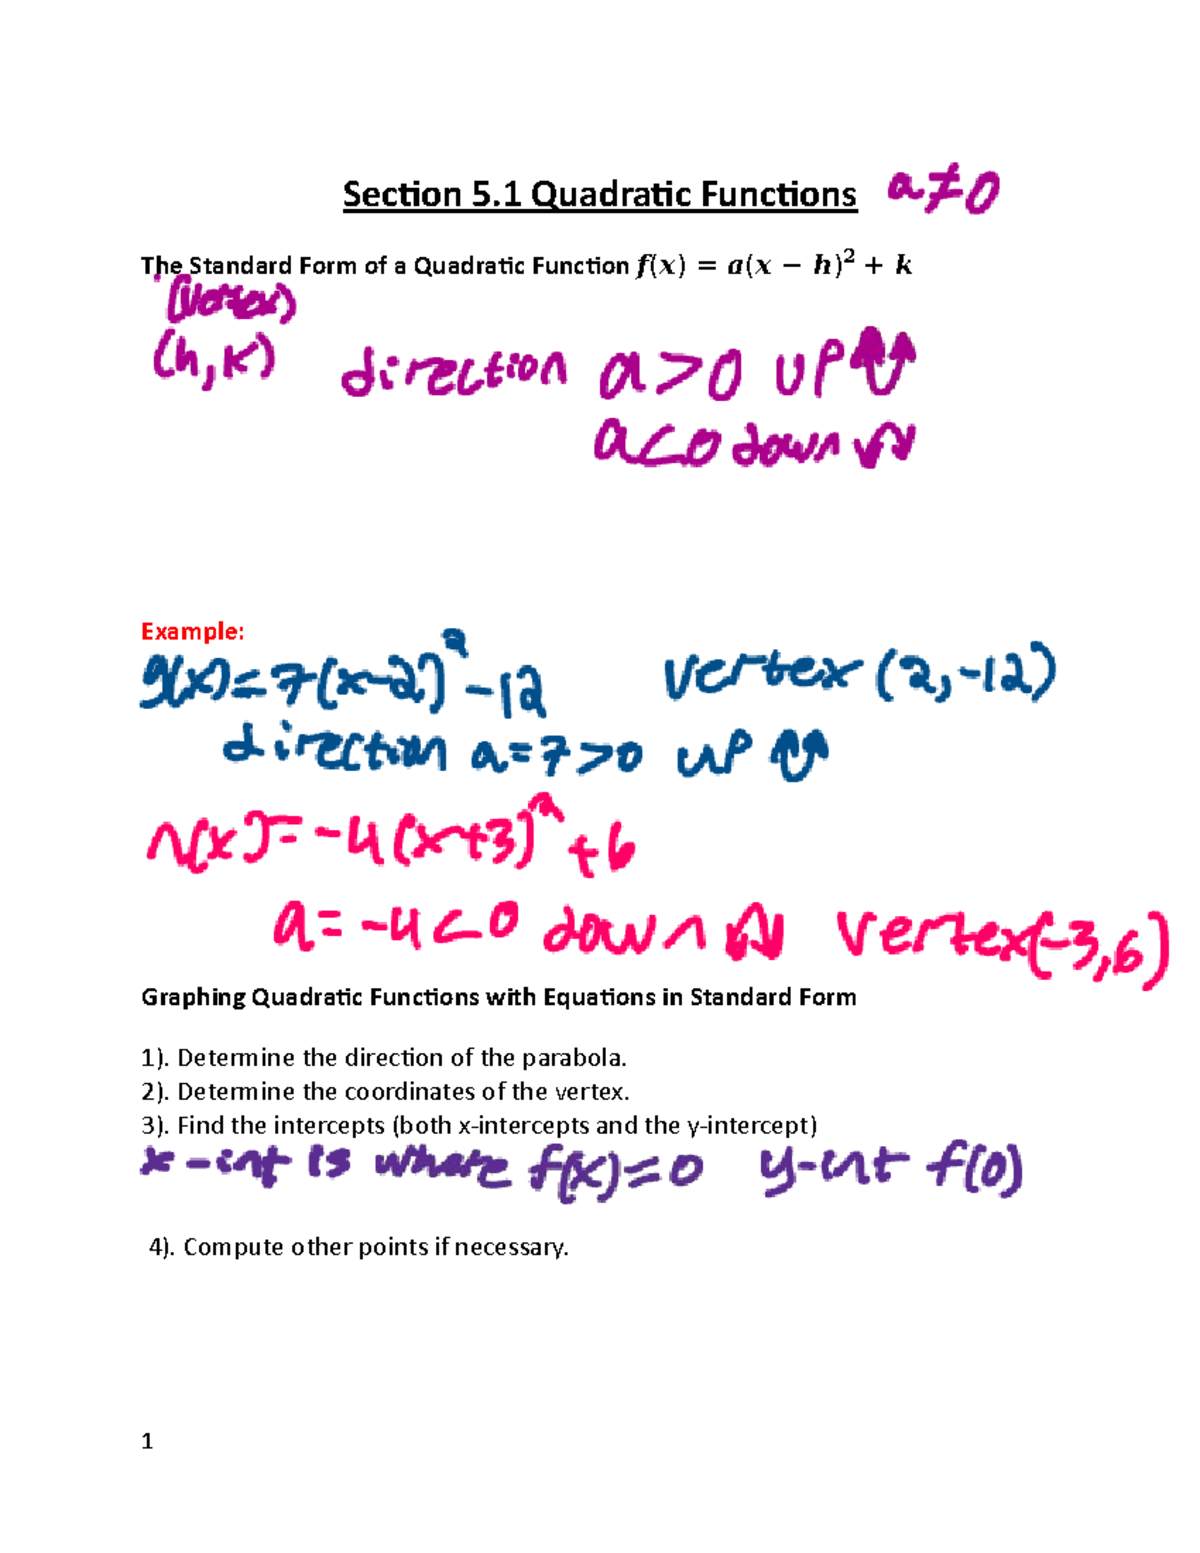 Section 5.1 Quadratic Functions a≠0
The Standard Form of a Quadratic Function f(x) = a(x − h)² + k
(vertex)
(h,k) direction a>0 up
a<0 down
Example:
g(x)=7(x-2)²-12 vertex (2,-12)
direction a=7>0 up
r(x)=-4(x+3)²+6
a=-4<0 down vertex(-3,6)
Graphing Quadratic Functions with Equations in Standard Form
1). Determine the direction of the parabola.
2). Determine the coordinates of the vertex.
3). Find the intercepts (both x-intercepts and the y-intercept)
x-int is where f(x)=0 y-int f(0)
4). Compute other points if necessary.
1